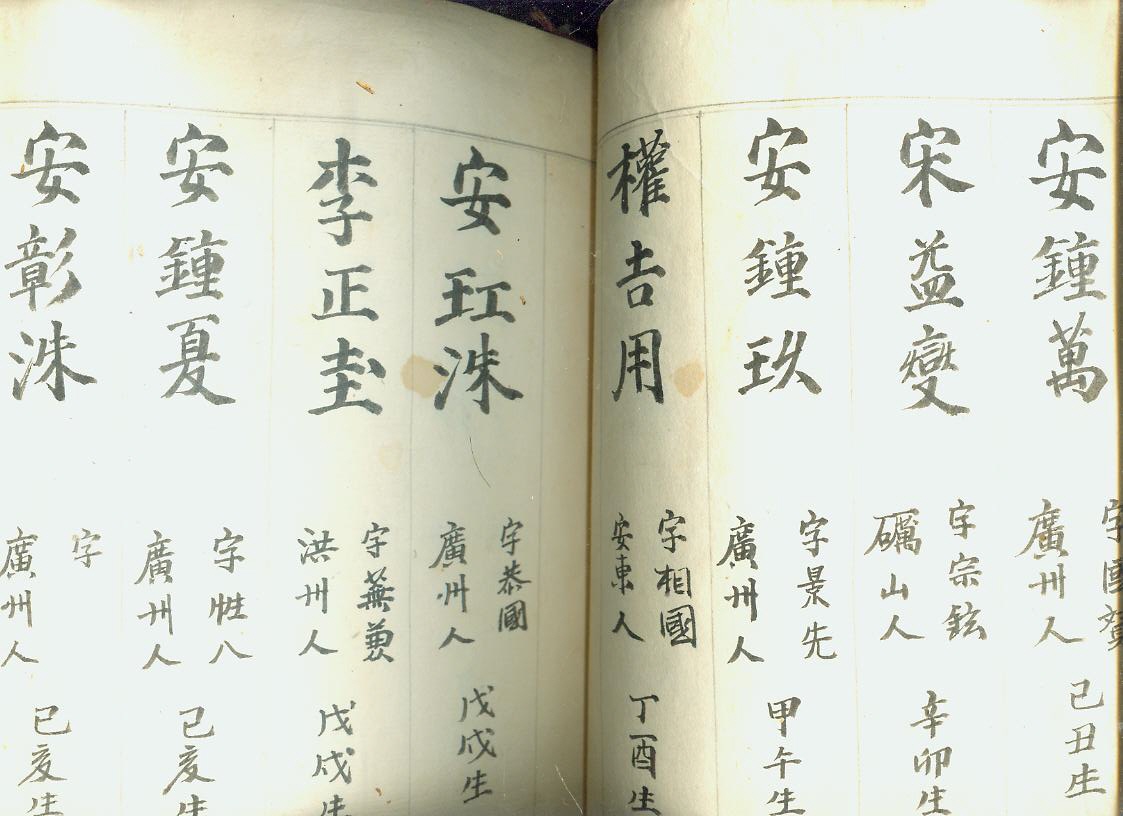 安鍾萬
字國賓
廣州人
己丑生
宋益燮
字宗鉉
礪山人
辛卯生
安鍾玖
字景先
廣州人
甲午生
權吉用
字相國
安東人
丁酉生
安玒洙
字恭國
廣州人
戊戌生
李正圭
字蕪
洪州人
戊戌生
安鍾夏
字性八
廣州人
己亥生
安彰洙
字
廣州人
己亥生